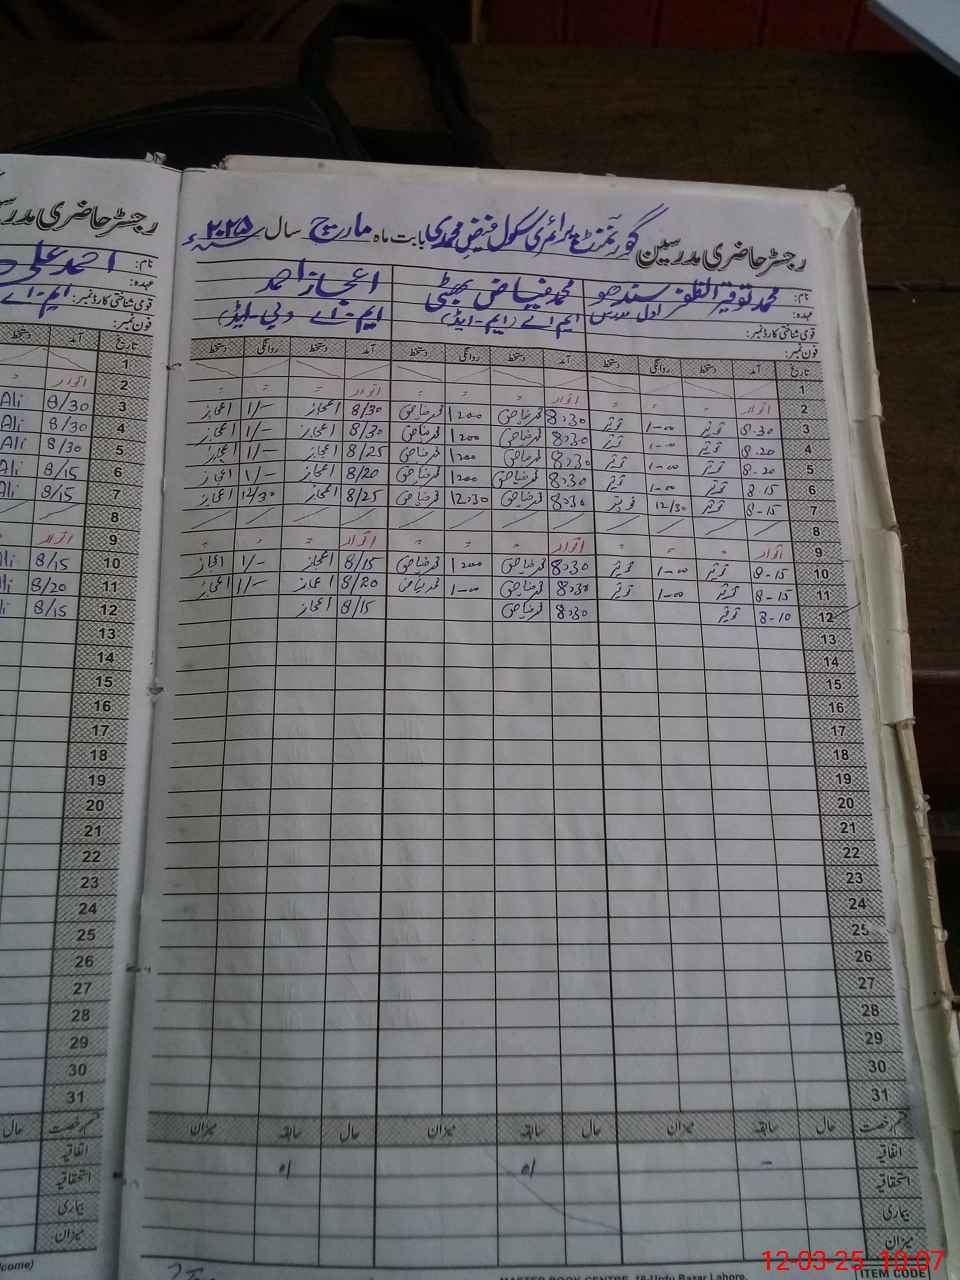 رجسٹر حاضری مدرسین گورنمنٹ پرائمری سکول فیض محمدی بابت ماہ مارچ سال ۲۰۲۵ء
نام: محمد توقیر الظفر سندھو محمد فیاض بھٹی اعجاز احمد
عہدہ: اول مدرس ایم اے (ایم-ایڈ) ایم-اے (بی-ایڈ)
قومی شناختی کارڈ نمبر:
فون نمبر:
تاریخ آمد دستخط روانگی دستخط آمد دستخط روانگی دستخط آمد دستخط روانگی دستخط
1
2 اتوار " " " اتوار " " " اتوار " " "
3 8-30 توقیر 1-00 توقیر 8:30 محمد فیاض 1:00 محمد فیاض 8/30 اعجاز 1/- اعجاز
4 8-20 توقیر 1-00 توقیر 8:30 محمد فیاض 1:00 محمد فیاض 8/30 اعجاز 1/- اعجاز
5 8-20 توقیر 1-00 توقیر 8:30 محمد فیاض 1:00 محمد فیاض 8/25 اعجاز 1/- اعجاز
6 8-15 توقیر 1-00 توقیر 8:30 محمد فیاض 1:00 محمد فیاض 8/20 اعجاز 1/- اعجاز
7 8-15 توقیر 12/30 توقیر 8:30 محمد فیاض 12:30 محمد فیاض 8/25 اعجاز 12/30 اعجاز
8
9 اتوار " " " اتوار " " " اتوار " " "
10 8-15 توقیر 1-00 توقیر 8:30 محمد فیاض 1:00 محمد فیاض 8/15 اعجاز 1/- اعجاز
11 8-15 توقیر 1-00 توقیر 8:30 محمد فیاض 1-00 محمد فیاض 8/20 اعجاز 1/- اعجاز
12 8-10 توقیر 8:30 محمد فیاض 8/15 اعجاز
13
14
15
16
17
18
19
20
21
22
23
24
25
26
27
28
29
30
31
قسم رخصت حال سابقہ میزان حال سابقہ میزان حال سابقہ میزان
اتفاقیہ
استحقاقیہ
بیماری
میزان
ITEM CODE
MASTER BOOK CENTRE, 18-Urdu Bazar Lahore.
رجسٹر حاضری
نام: احمد علی
عہدہ: ایم-اے
قومی شناختی کارڈ نمبر:
فون نمبر:
تاریخ آمد دستخط
1
2 اتوار "
3 8/30 Ali
4 8/30 Ali
5 8/30 Ali
6 8/15 Ali
7 8/15 Ali
8
9 اتوار "
10 8/15 Ali
11 8/20 Ali
12 8/15 Ali
13
14
15
16
17
18
19
20
21
22
23
24
25
26
27
28
29
30
31
قسم رخصت حال
اتفاقیہ
استحقاقیہ
بیماری
میزان
12-03-25 10:07